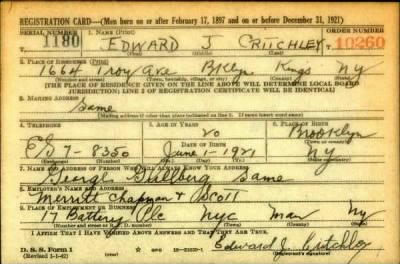 REGISTRATION CARD—(Men born on or after February 17, 1897 and on or before December 31, 1921)
SERIAL NUMBER 1. NAME (Print) ORDER NUMBER
1180 EDWARD J CRITCHLEY 10260
(First) (Middle) (Last)
2. PLACE OF RESIDENCE (Print)
1664 Troy Ave Bklyn Kings Ny
(Number and street) (Town, township, village, or city) (County) (State)
[THE PLACE OF RESIDENCE GIVEN ON THE LINE ABOVE WILL DETERMINE LOCAL BOARD
JURISDICTION; LINE 2 OF REGISTRATION CERTIFICATE WILL BE IDENTICAL]
3. MAILING ADDRESS
Same
[Mailing address if other than place indicated on line 2. If same insert word same]
4. TELEPHONE 5. AGE IN YEARS 6. PLACE OF BIRTH
20 Brooklyn
DATE OF BIRTH (Town or county)
7-8350 June 1-1921 NY
(Exchange) (Number) (Mo.) (Day) (Yr.) (State or country)
7. NAME AND ADDRESS OF PERSON WHO WILL ALWAYS KNOW YOUR ADDRESS
Same
8. EMPLOYER'S NAME AND ADDRESS
Merritt Chapman & Scott
9. PLACE OF EMPLOYMENT OR BUSINESS
17 Battery Plc NYC Man Ny
(Number and street or R. F. D. number) (Town) (County) (State)
I AFFIRM THAT I HAVE VERIFIED ABOVE ANSWERS AND THAT THEY ARE TRUE.
D. S. S. Form 1 GPO
(Revised 1-1-42) Edward J. Critchley
(Registrant's signature)